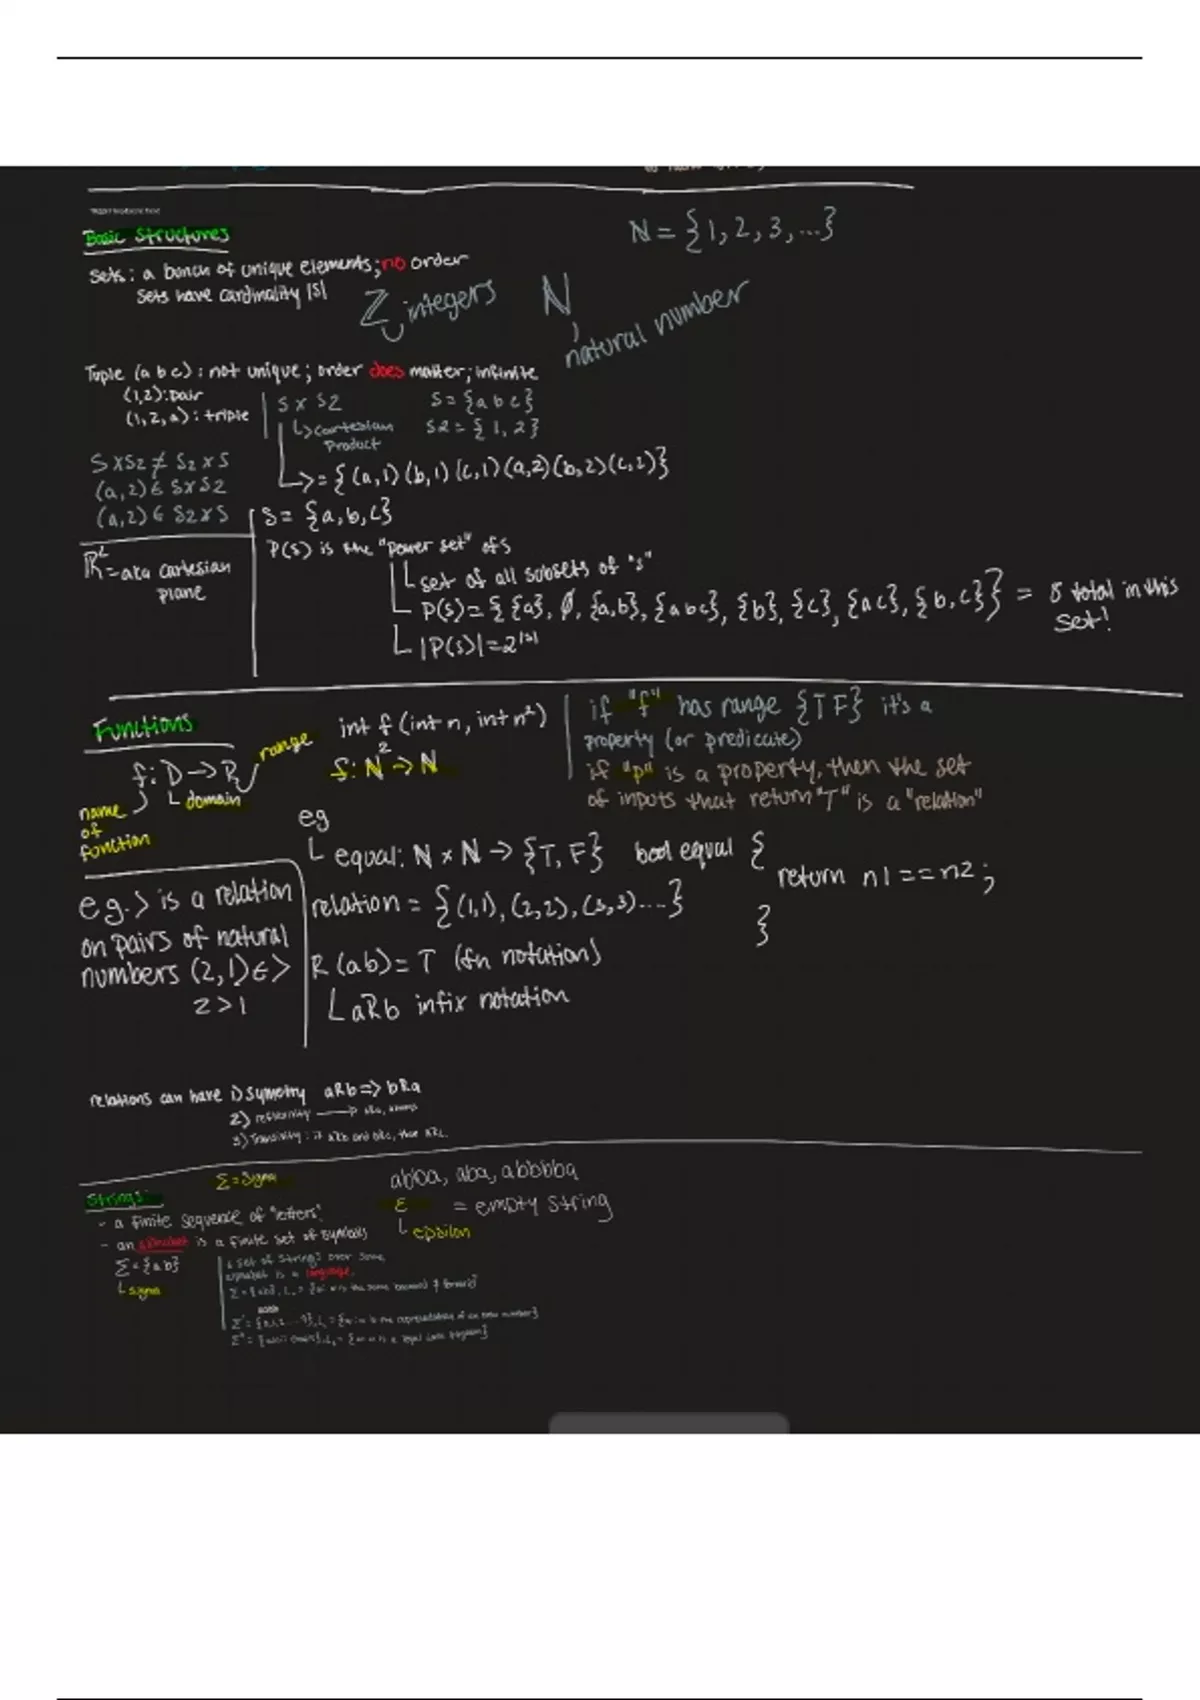 Basic Structures
N = {1, 2, 3, ...}
sets: a bunch of unique elements; no order
sets have cardinality |S|
Z integers
N
natural number
Tuple (a b c): not unique; order does matter; infinite
(1,2): pair
(1, 2, a): triple
S x S2
S = {a b c}
↳ Cartesian Product
S2 = { 1, 2}
↳ = { (a,1) (b,1) (c,1) (a,2) (b,2) (c,2)}
S x S2 ≠ S2 x S
(a,2) ∈ S x S2
(a,2) ∈ S2 x S
S = {a, b, c}
P(s) is the "power set" of s
set of all subsets of "s"
P(s) = { {a}, Ø, {a,b}, {a b c}, {b}, {c}, {a c}, {b, c}} = 8 total in this set!
|P(s)| = 2^|s|
R² = aka cartesian plane
Functions
f: D -> R
range
domain
name of function
int f (int n, int n²)
f: N² -> N
if "f" has range {T F} it's a
property (or predicate)
if "p" is a property, then the set
of inputs that return "T" is a "relation"
eg
equal: N x N -> {T, F}
bool equal {
return n1 == n2;
}
relation = {(1,1), (2,2), (3,3)...}
R (ab) = T (fn notation)
aRb infix notation
eg. > is a relation
on pairs of natural
numbers (2,1) ∈ >
2 > 1
relations can have 1) symetry aRb => bRa
2) reflexivity
3) Transitivity: if aRb and bRc, then aRc
Strings:
Σ = Sigma
abba, aba, abbbba
- a finite sequence of "letters"
ε = empty string
epsilon
- an alphabet is a finite set of symbols
Σ = {ab}
sigma
a set of strings over some
alphabet is a language.